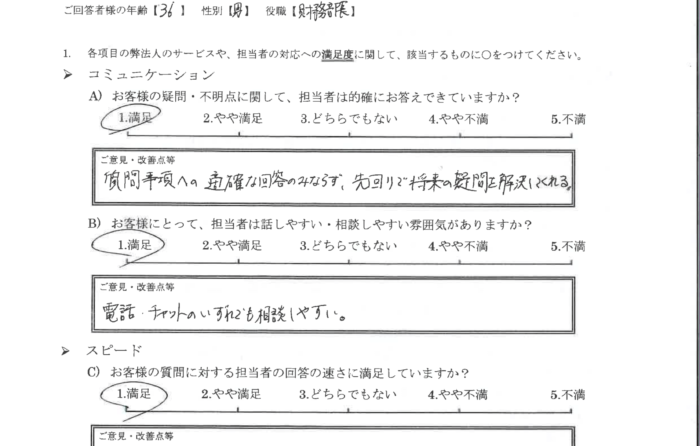 ご回答者様の年齢【36】 性別【男】 役職【財務部長】
1. 各項目の弊法人のサービスや、担当者の対応への満足度に関して、該当するものに○をつけてください。
➢ コミュニケーション
A) お客様の疑問・不明点に関して、担当者は的確にお答えできていますか？
1.満足 2.やや満足 3.どちらでもない 4.やや不満 5.不満
ご意見・改善点等
質問事項への適確な回答のみならず、先回りで将来の疑問を解決してくれる。
B) お客様にとって、担当者は話しやすい・相談しやすい雰囲気がありますか？
1.満足 2.やや満足 3.どちらでもない 4.やや不満 5.不満
ご意見・改善点等
電話・チャットのいずれでも相談しやすい。
➢ スピード
C) お客様の質問に対する担当者の回答の速さに満足していますか？
1.満足 2.やや満足 3.どちらでもない 4.やや不満 5.不満
ご意見・改善点等